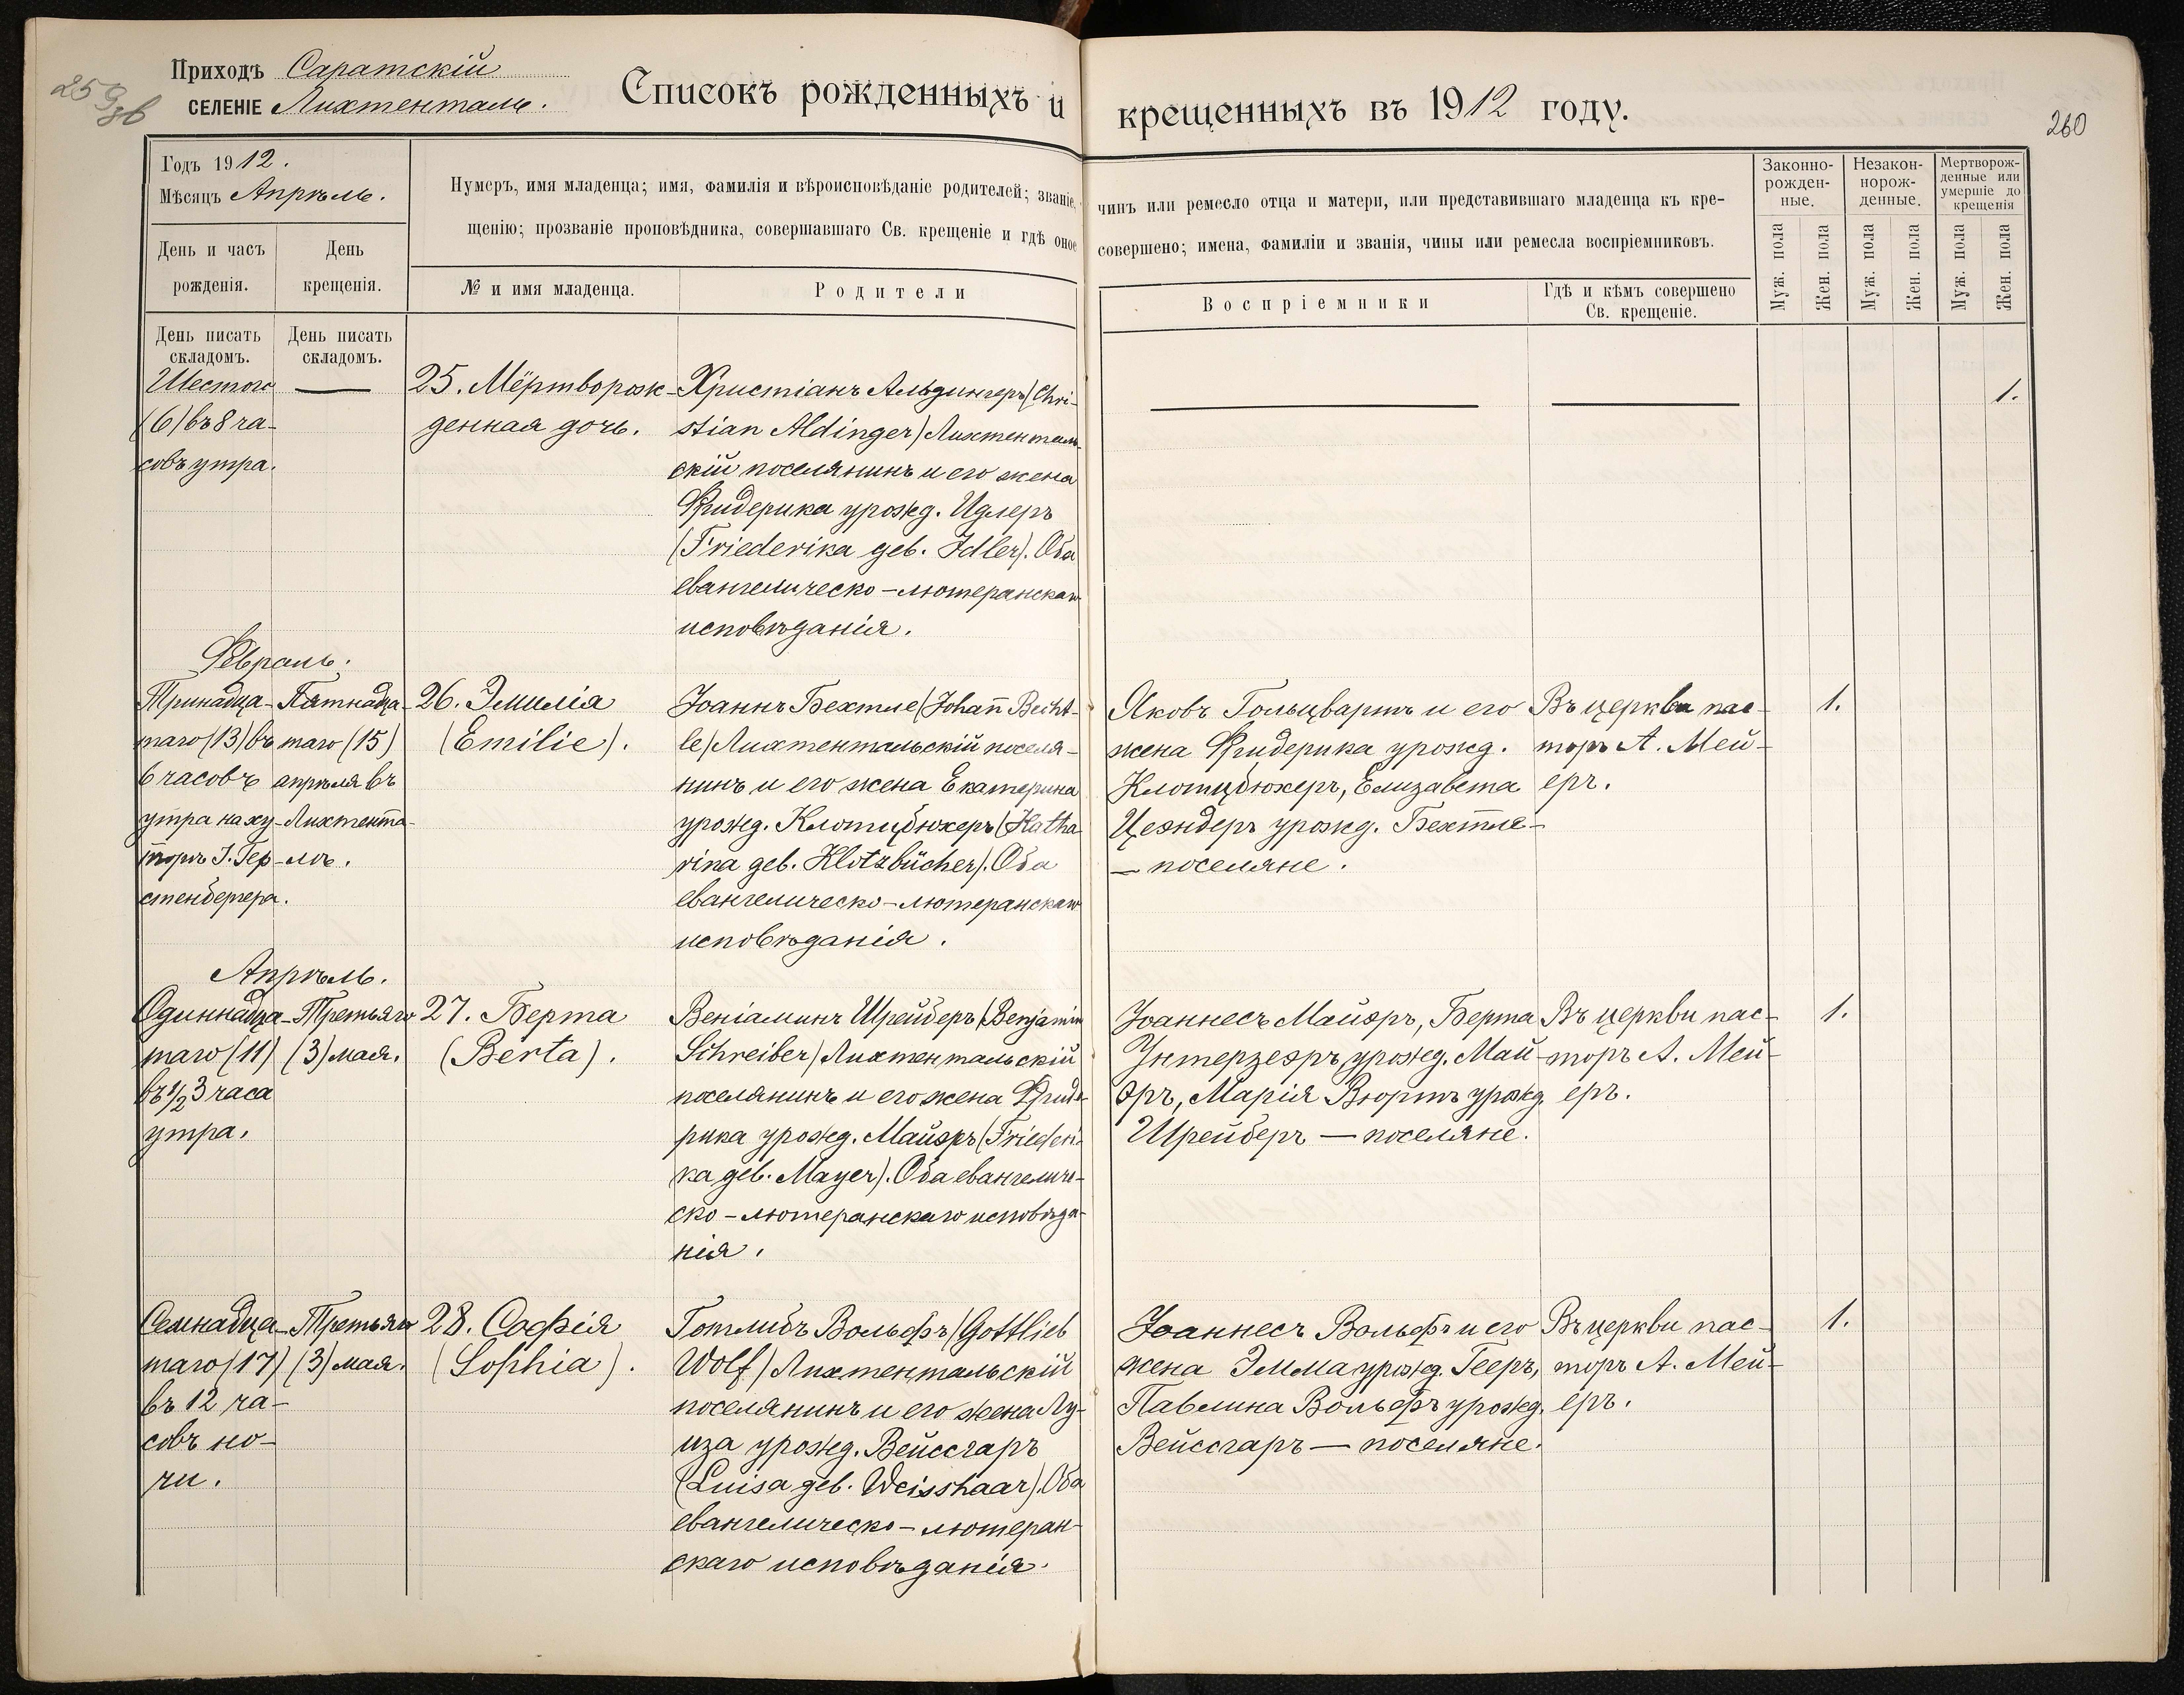 259
об
Приходъ Саратскій
СЕЛЕНІЕ Лихтенталь.
Списокъ рожденныхъ и крещенныхъ въ 1912 году.
260
Годъ 1912.
Мѣсяцъ Апрѣль.
День и часъ
рожденія.
День
крещенія.
Нумеръ, имя младенца; имя, фамилія и вѣроисповѣданіе родителей; званіе, чинъ или ремесло отца и матери, или представившаго младенца къ кре-
щенію; прозваніе проповѣдника, совершавшаго Св. крещеніе и гдѣ оное совершено; имена, фамиліи и званія, чины или ремесла воспріемниковъ.
№ и имя младенца.
Родители
Воспріемники
Гдѣ и кѣмъ совершено
Св. крещеніе.
Законно-
рожден-
ные.
Незакон-
норож-
денные.
Мертворож-
денные или
умершіе до
крещенія
Муж. пола
Жен. пола
Муж. пола
Жен. пола
Муж. пола
Жен. пола
День писать
складомъ.
День писать
складомъ.
Шестого
(6) въ 8 ча-
совъ утра.
—
25. Мёртворож-
денная дочь.
Христіанъ Альдингеръ (Chri-
stian Aldinger) Лихтенталь-
скій поселянинъ и его жена
Фридерика урожд. Идлеръ
(Friederika geb. Idler). Оба
евангелическо-лютеранскаго
исповѣданія.
—
—
1.
Февраль.
Тринадца-
таго (13) въ
6 часовъ
утра на ху-
торѣ І. Гер-
стенбергера.
Пятнадца-
таго (15)
апрѣля въ
Лихтента-
лѣ.
26. Эмилія
(Emilie).
Іоаннъ Бехтле (Johan̄ Becht-
le) Лихтентальскій поселя-
нинъ и его жена Екатерина
урожд. Клотцбюхеръ (Katha-
rina geb. Klotzbücher). Оба
евангелическо-лютеранскаго
исповѣданія.
Яковъ Гольцвартъ и его
жена Фридерика урожд.
Клотцбюхеръ, Елизавета
Цеэндеръ урожд. Бехтле-
— поселяне.
Въ церкви пас-
торъ А. Мей-
еръ.
1.
Апрѣль.
Одиннадца-
таго (11)
въ 1/2 3 часа
утра.
Третьяго
(3) мая.
27. Берта
(Berta).
Веніаминъ Шрейберъ (Benjamin
Schreiber) Лихтентальскій
поселянинъ и его жена Фриде-
рика урожд. Майэръ (Friederi-
ka geb. Mayer). Оба евангеличе-
ско-лютеранскаго исповѣда-
нія.
Іоаннесъ Майэръ, Берта
Унтерзееръ урожд. Май-
эръ, Марія Вюртъ урожд.
Шрейберъ — поселяне.
Въ церкви пас-
торъ А. Мей-
еръ.
1.
Семнадца-
таго (17)
въ 12 ча-
совъ но-
чи.
Третьяго
(3) мая.
28. Софія
(Sophia).
Готлибъ Вольфъ (Gottlieb
Wolf) Лихтентальскій
поселянинъ и его жена Лу-
иза урожд. Вейссгаръ
(Luisa geb. Weisshaar). Оба
евангелическо-лютеран-
скаго исповѣданія.
Іоаннесъ Вольфъ и его
жена Эмма урожд. Гееръ,
Павлина Вольфъ урожд.
Вейссгаръ — поселяне.
Въ церкви пас-
торъ А. Мей-
еръ.
1.